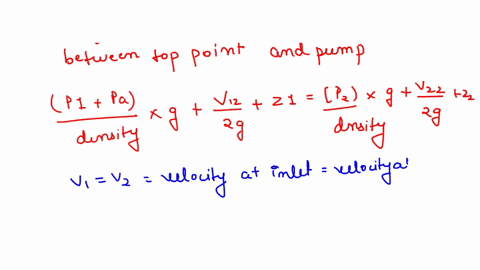 between top point and pump
(P1 + Pa) / density × g + V12 / 2g + z1 = [P2] / dnsity × g + V2-2 / 2g + z2
V1 = V2 = velocity at inlet = velocity a